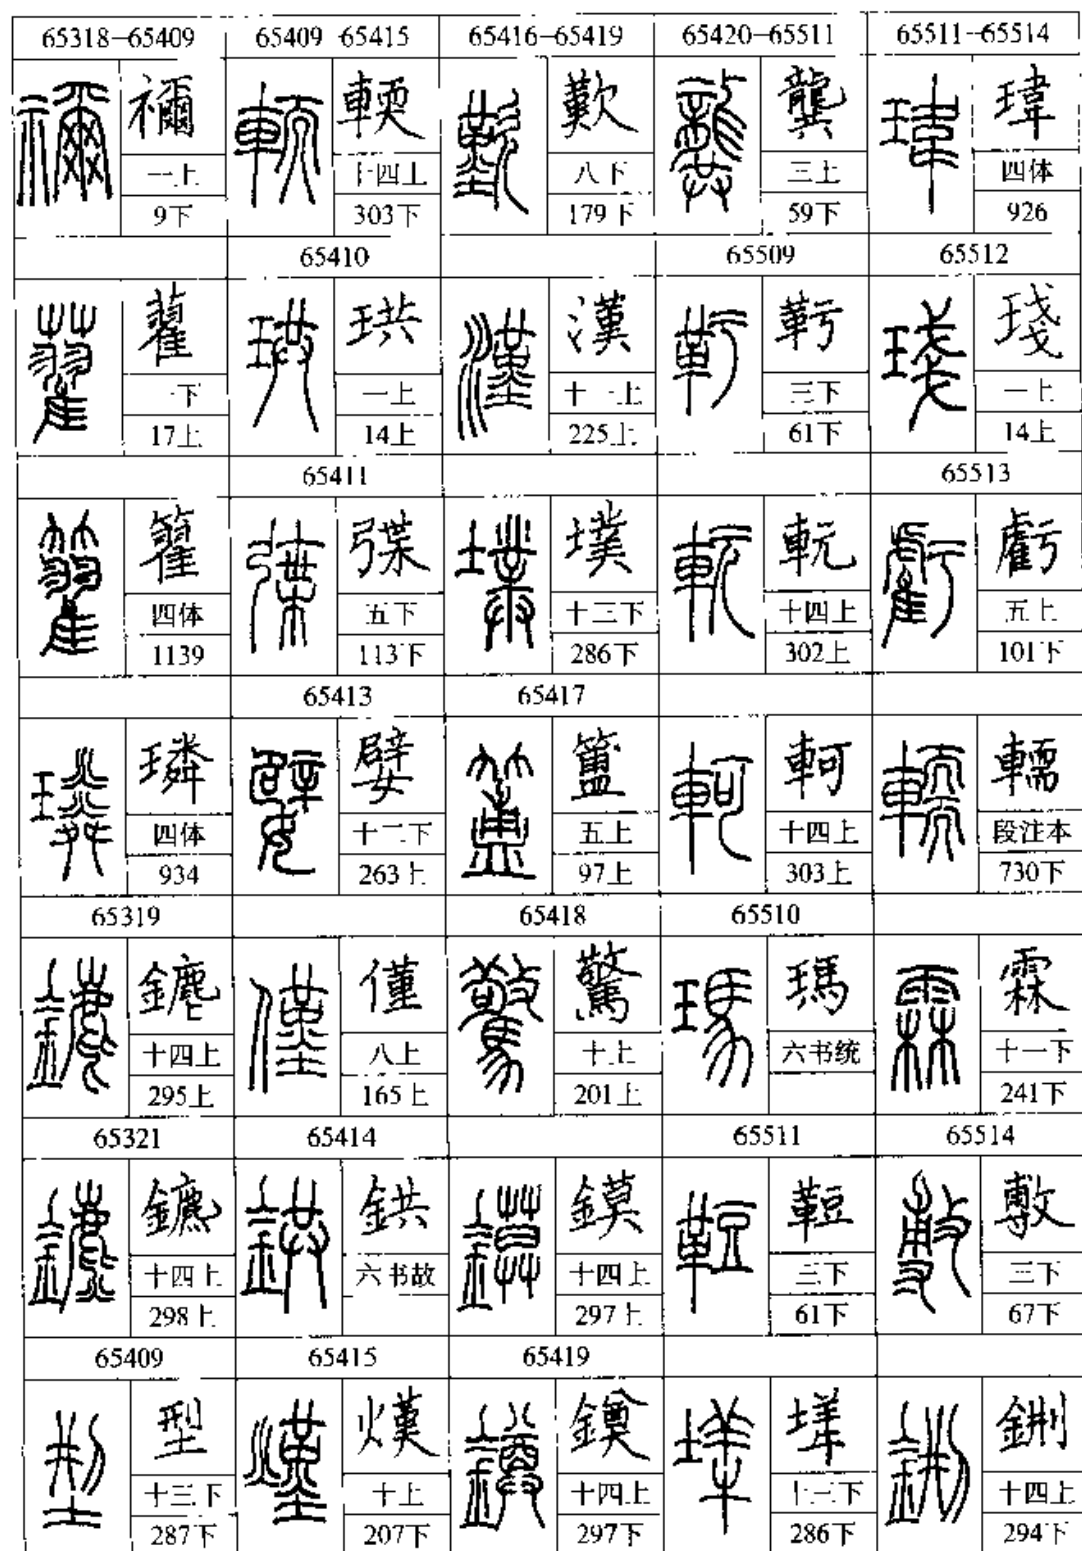 65318-65409
禰
一上
9下
藋
一下
17上
籊
四体
1139
璘
四体
934
65319
十四上
295上
65321
鑣
十四上
298上
65409
型
十三下
287下
65409-65415
十四上
303下
65410
珙
一上
14上
65411
弽
五下
113下
65413
嬖
十二下
263上
僅
八上
165上
65414
鉷
六书故
65415
熯
十上
207下
65416-65419
歎
八下
179下
漢
十一上
225上
墣
十三下
286下
65417
簠
五上
97上
65418
驚
十上
201上
鏌
十四上
297上
65419
十四上
297下
65420-65511
龔
三上
59下
65509
三下
61下
十四上
302上
軻
十四上
303上
65510
瑪
六书统
65511
三下
61下
十三下
286下
65511-65514
瑋
四体
926
65512
琖
一上
14上
65513
虧
五上
101下
轜
段注本
730下
霖
十一下
241下
65514
敷
三下
67下
鉶
十四上
294下